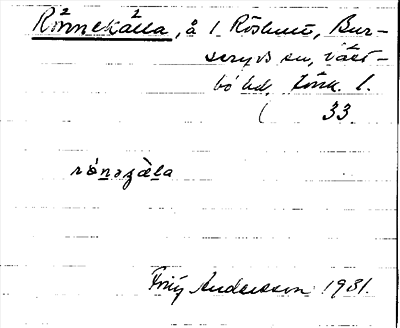 Rönnekälla, å 1 Röshult, Bur-
seryds sn, Västbo-
bo hd. Jönk. l.
33.
rónəʒɛ̀la
Fritz Andersson 1931.